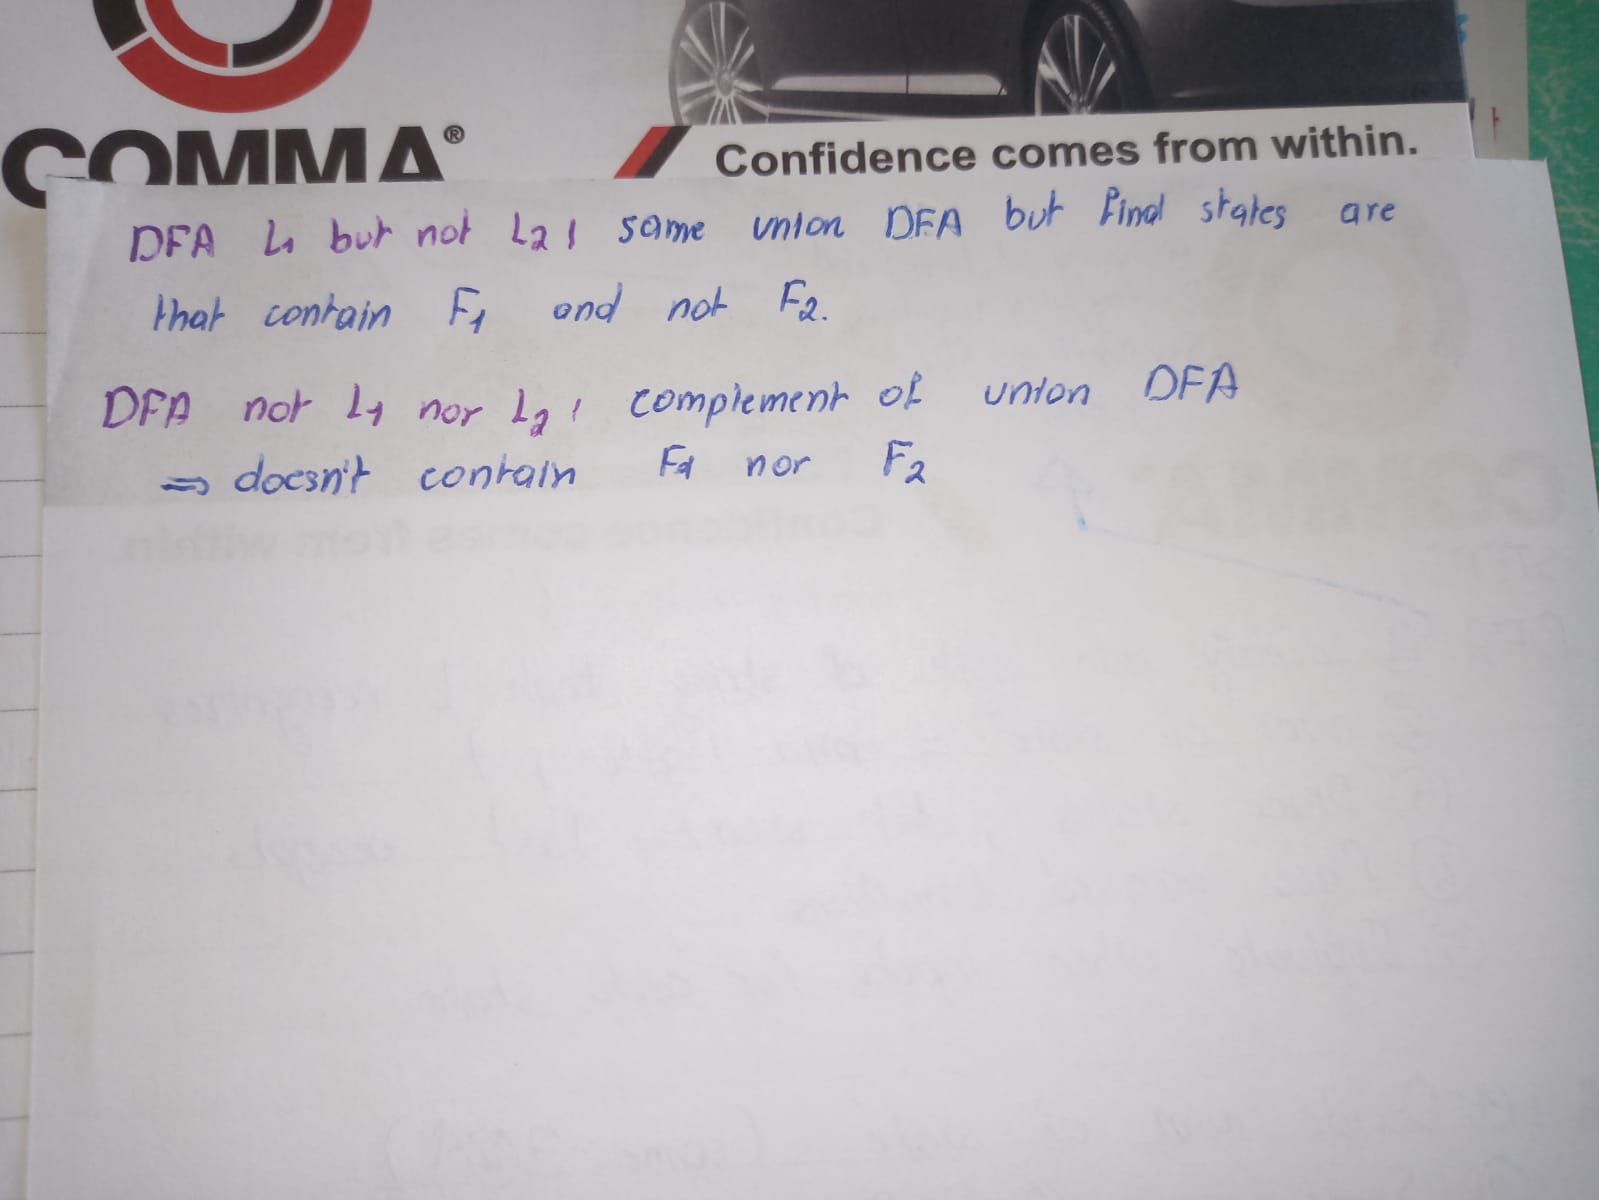 COMMA®
Confidence comes from within.
DFA L1 but not L2: same union DFA but final states are
that contain F1 and not F2.
DFA not L1 nor L2: complement of union DFA
⇒ doesn't contain F1 nor F2